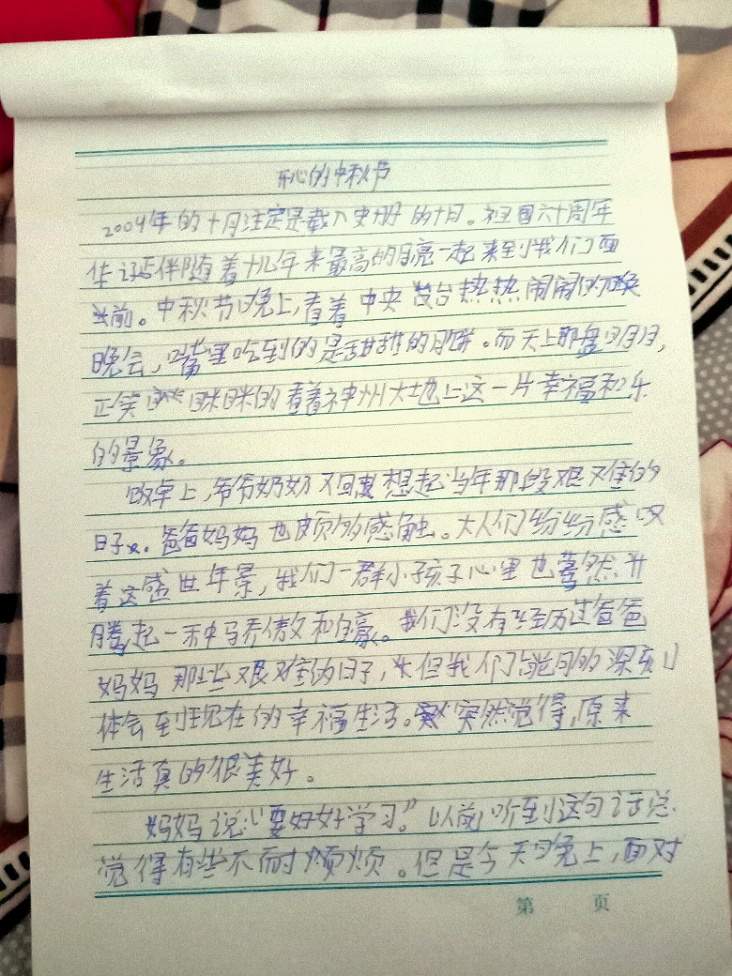 开心的中秋节
2009年的十月注定是载入史册的十月。祖国六十周年
华诞伴随着十几年来最高的月亮一起来到我们面
前。中秋节晚上,看着中央台热热闹闹的
晚会,嘴里吃到的是甜甜的月饼。而天上那盘明月,
正笑眯眯的看着神州大地上这一片幸福和乐
的景象。
饭桌上,爷爷奶奶又回想起当年那段艰难的
日子。爸爸妈妈也颇多感触。大人们纷纷感叹
着这盛世年景,我们一群小孩子心里也蓦然升
腾起一种骄傲和自豪。我们没有经历过爸爸
妈妈那些艰难的日子,但我们能同的深刻
体会到现在的幸福生活。突然觉得,原来
生活真的很美好。
妈妈说:“要好好学习。”以前听到这句话总
觉得有些不耐烦烦。但是今天晚上,面对
第 页